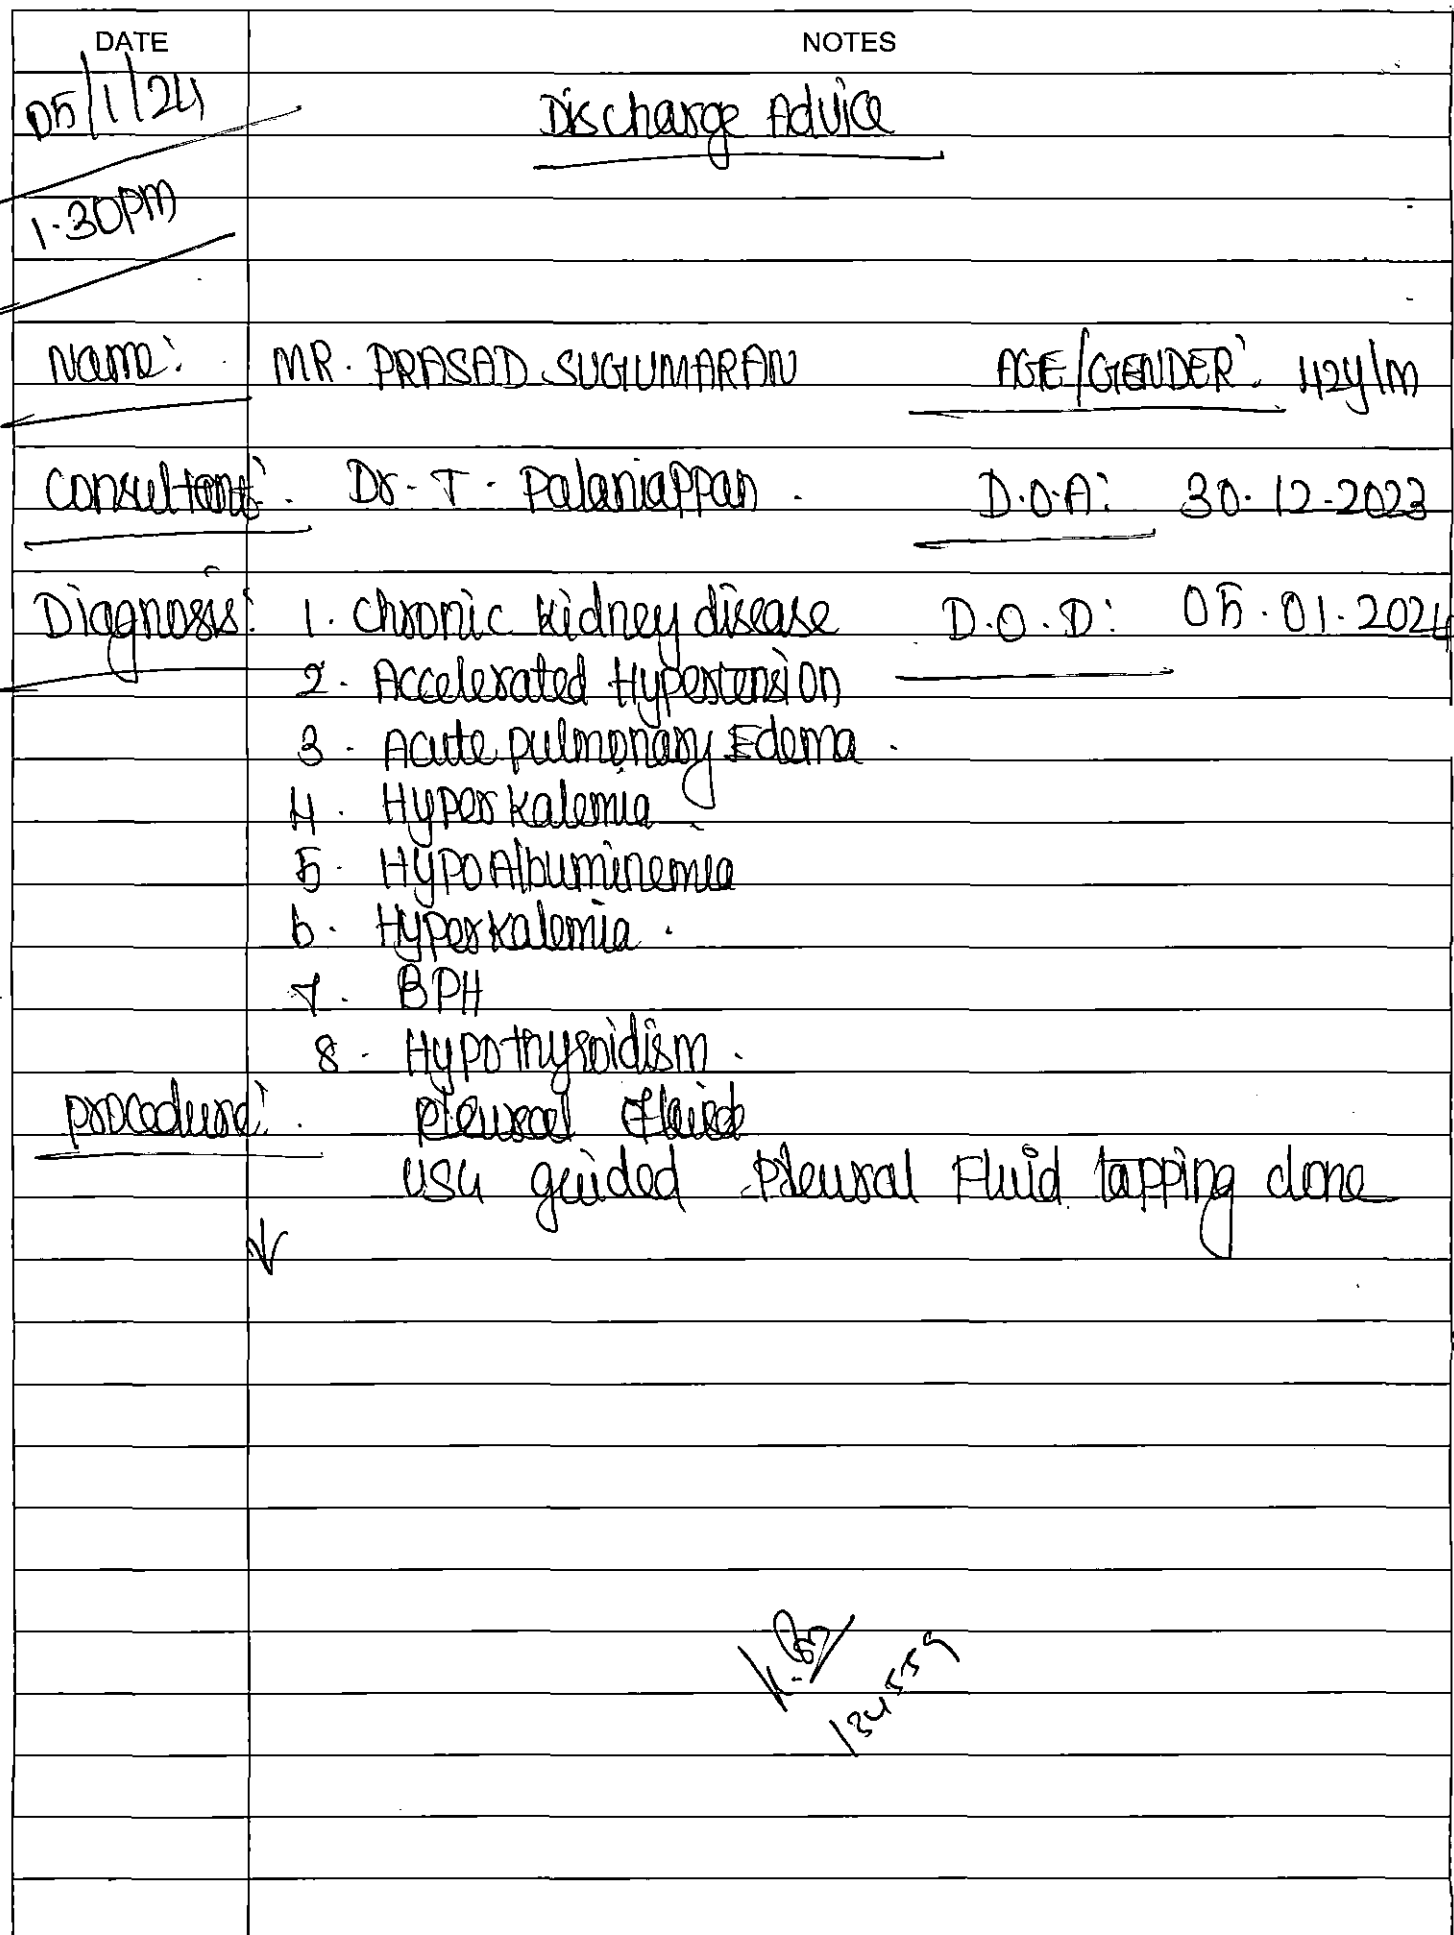 DATE NOTES
05/1/24 Discharge Advice
1.30PM
Name: MR. PRASAD SUGUMARAN AGE/GENDER: 42y/m
Consultant: Dr. T. Palaniappan. D.O.A: 30.12.2023
Diagnosis: 1. Chronic kidney disease D.O.D: 05.01.2024
2. Accelerated Hypertension
3. Acute pulmonary Edema.
4. Hyperkalemia
5. HypoAlbuminemia
6. Hyperkalemia.
7. BPH
8. Hypothyroidism.
Procedure: Pleural Fluid
USG guided Pleural Fluid tapping done
134559